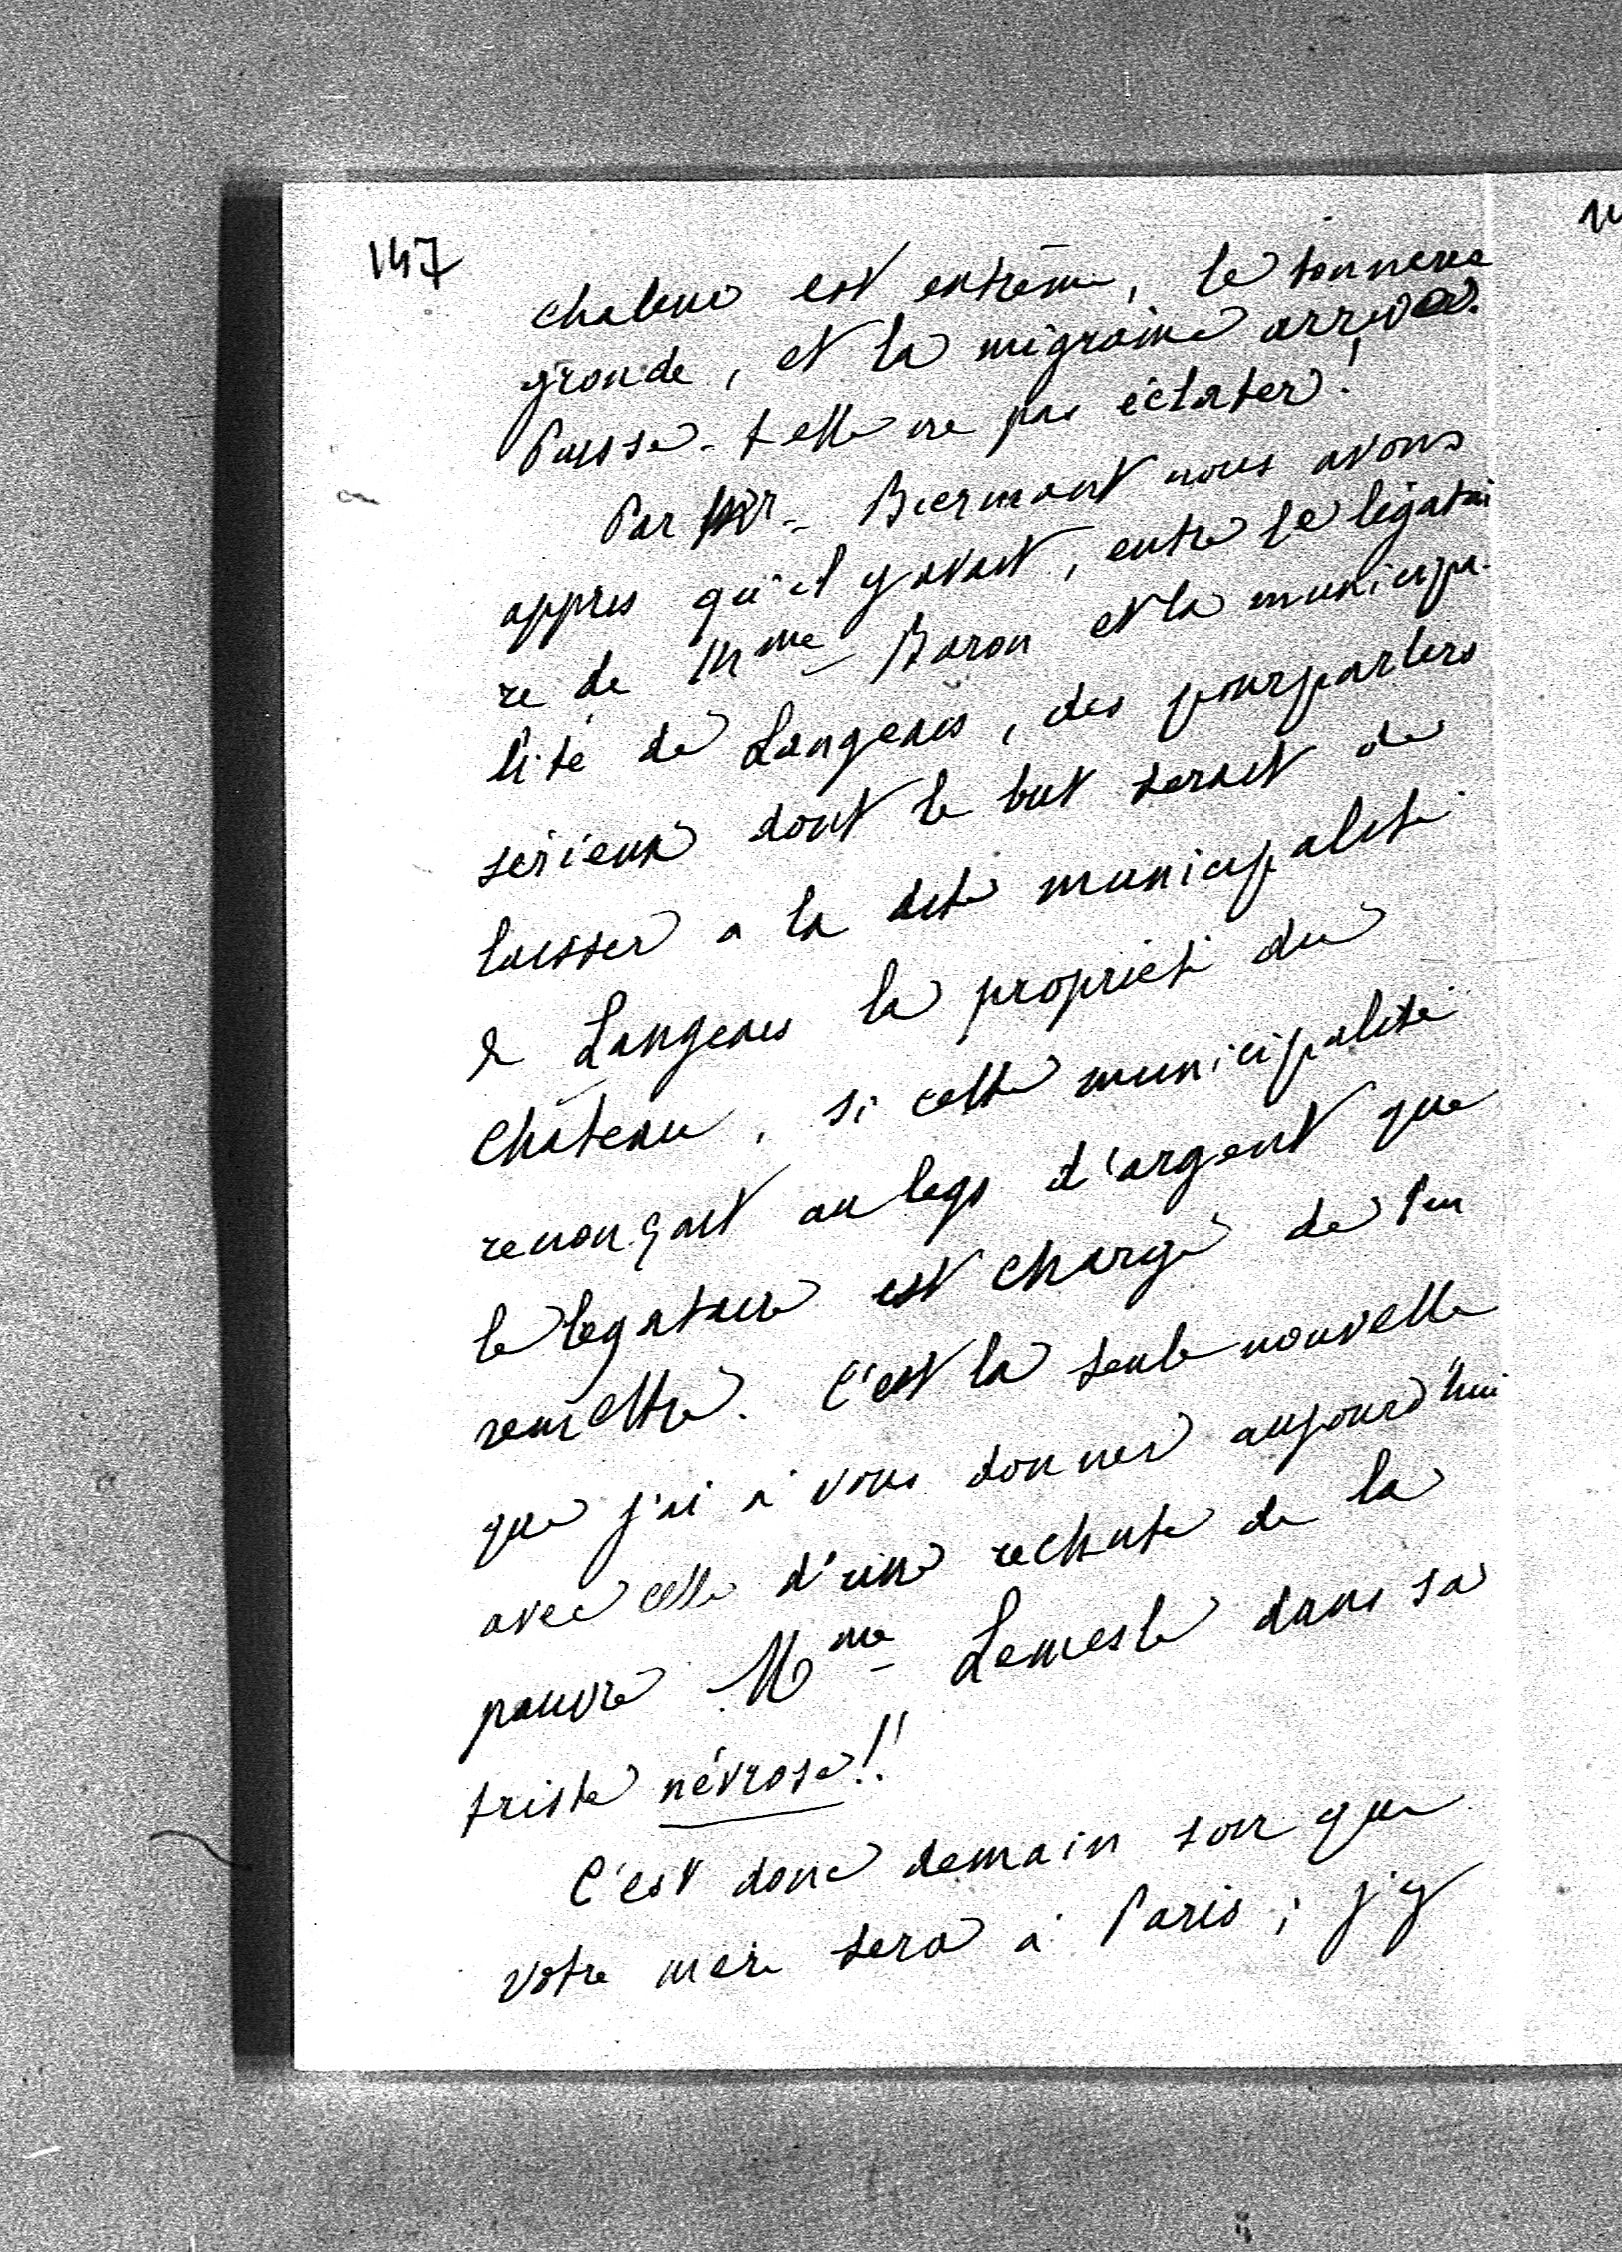 147
chaleur est extrême, le tonnerre
gronde, et la migraine arrive.
Puisse-t elle ne pas éclater !
Par Mr Biermant nous avons
appris qu'il y avait, entre le légatai
re de Mme Baron et la municipa-
lité de Langeais, des pourparlers
sérieux dont le but serait de
laisser a la dite municipalité
de Langeais la propriété du
Château, si cette municipalité
renonçait au legs d'argent que
le légataire est chargé de lui
remettre. C'est la seule nouvelle
que j'ai à vous donner aujourd'hui
avec celle d'une rechute de la
pauvre Mme Lemesle dans sa
triste névrose !!
C'est donc demain soir que
votre mère sera à Paris ; j'y